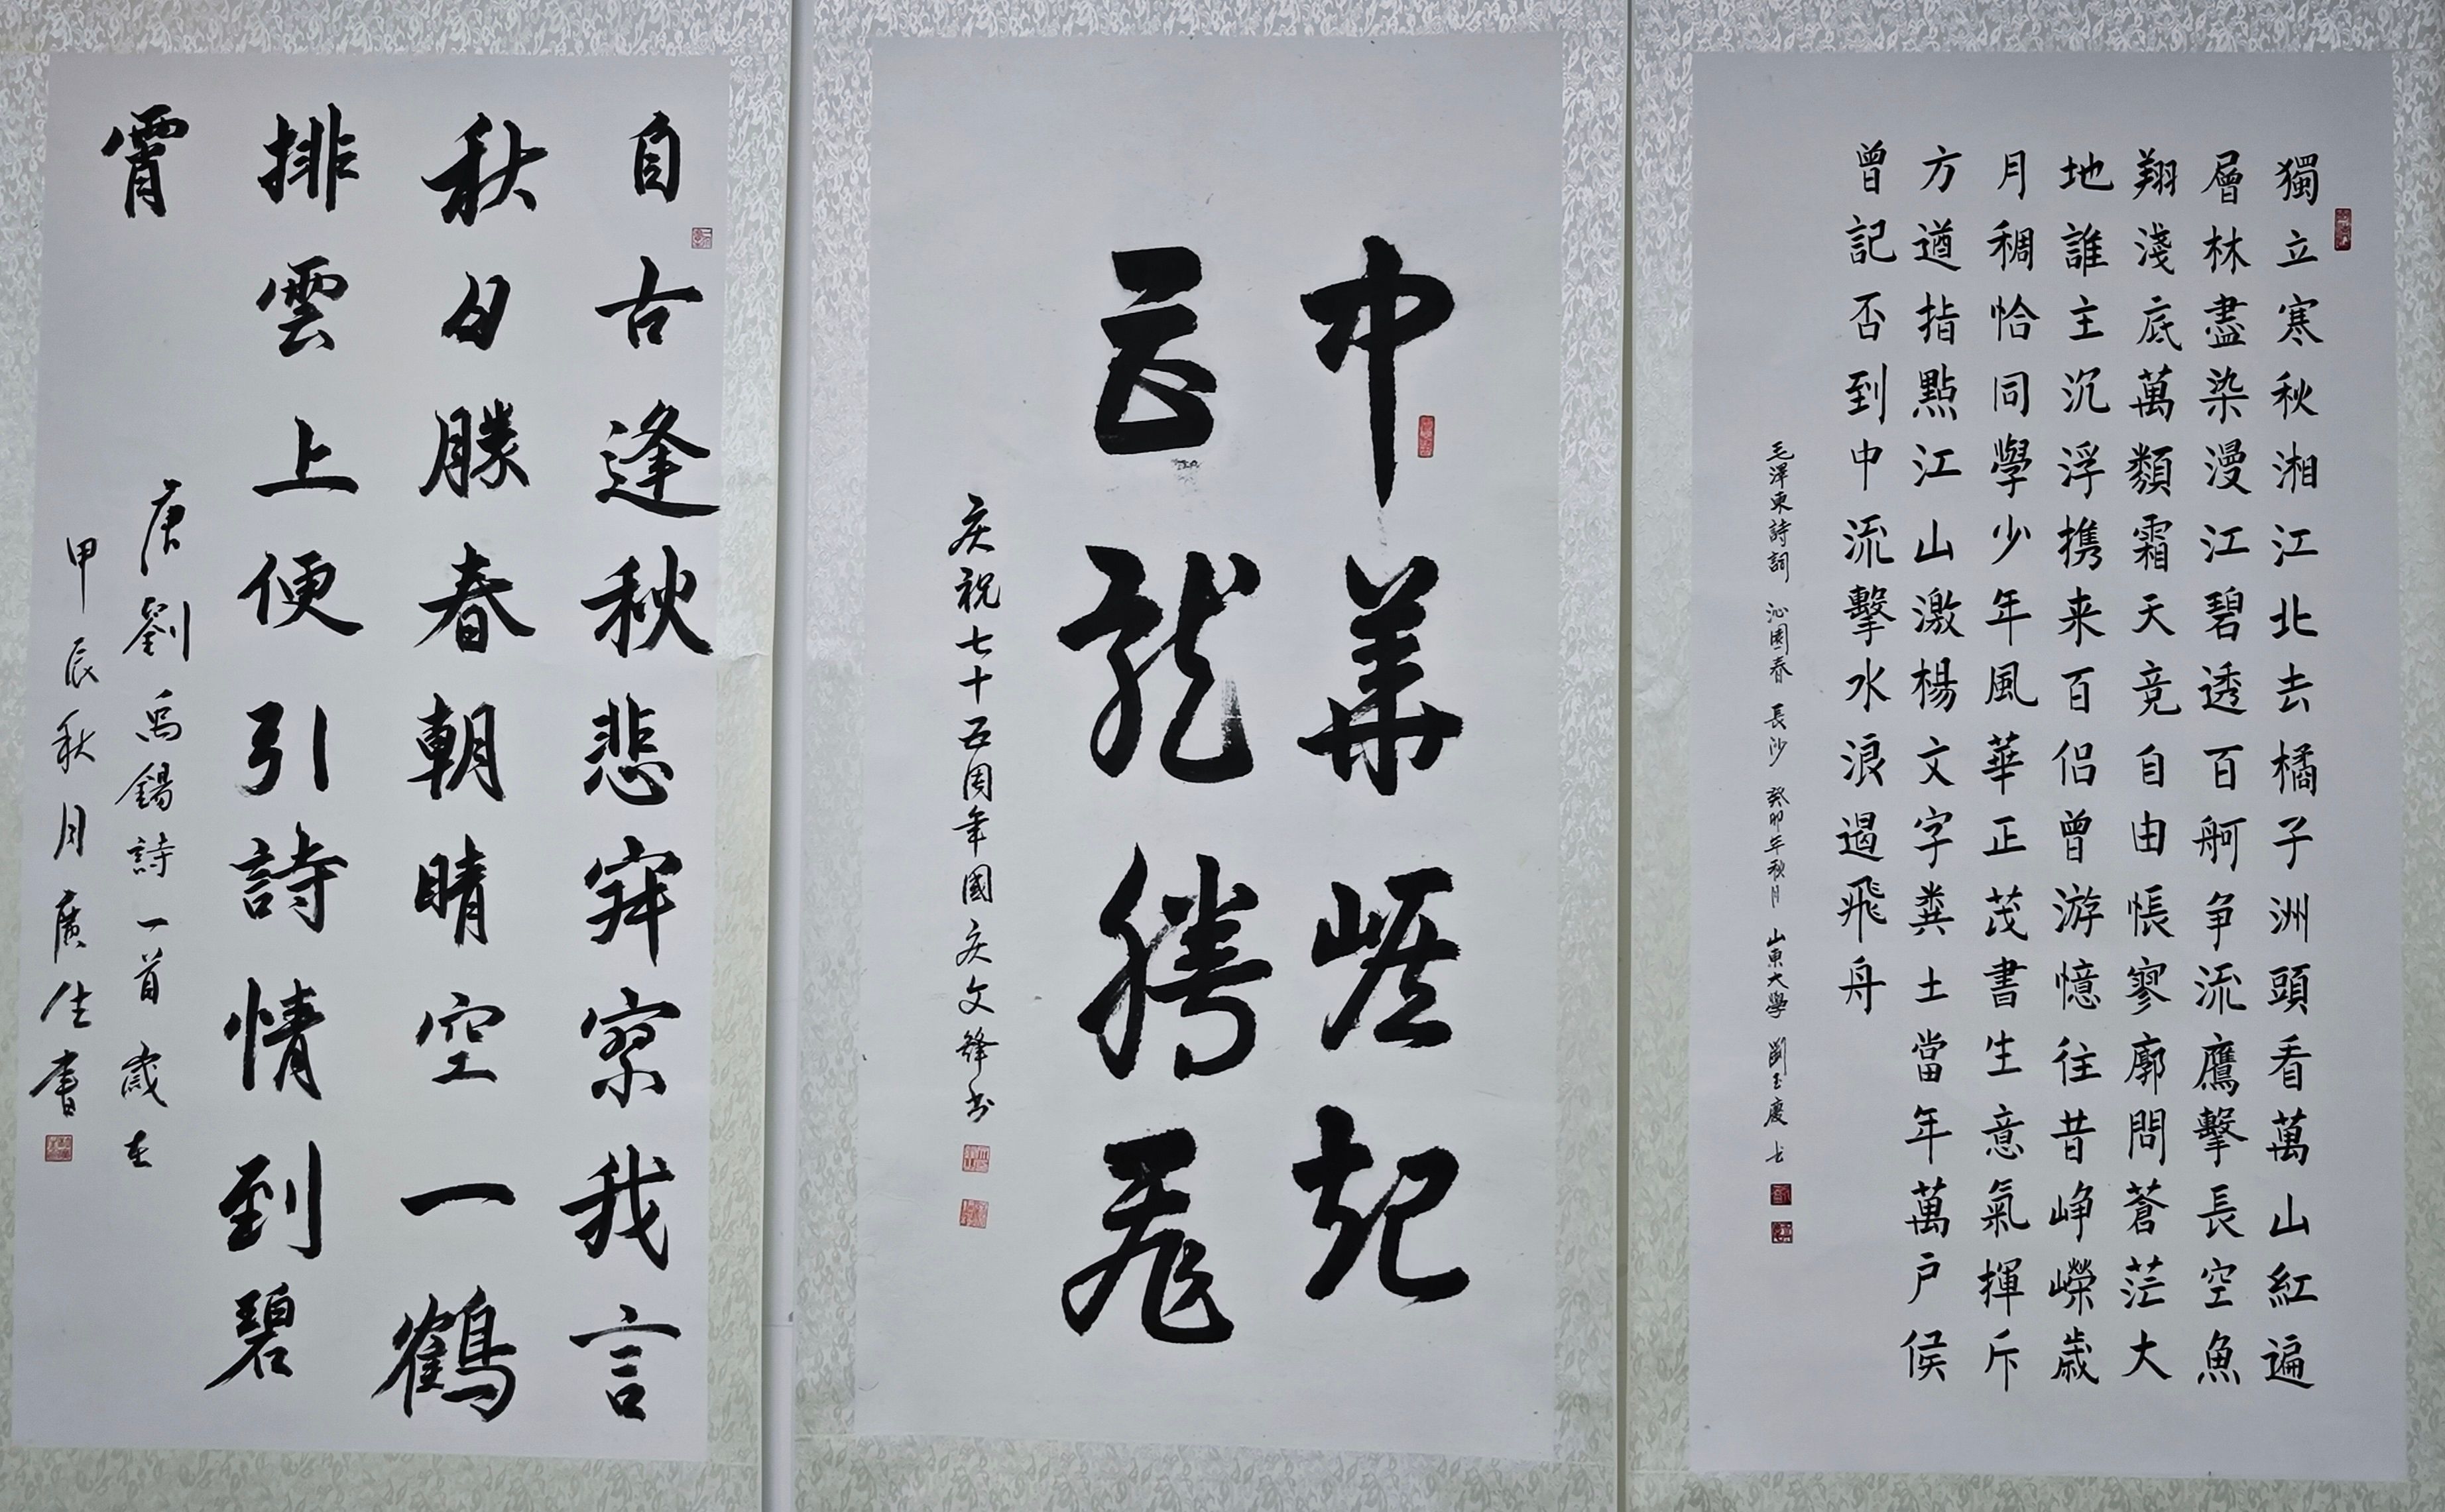 獨立寒秋湘江北去橘子洲頭看萬山紅遍
層林盡染漫江碧透百舸争流鷹擊長空魚
翔淺底萬類霜天竞自由悵寥廓問蒼茫大
地誰主沉浮携来百侣曾游憶往昔峥嶸歲
月稠恰同學少年風華正茂書生意氣揮斥
方遒指點江山激楊文字粪土當年萬户侯
曾記否到中流擊水浪遏飛舟
毛澤東詩詞 沁園春 長沙 癸卯年秋月 山東大學 劉玉慶书
中華崛起
巨龙腾飛
庆祝七十五周年國庆文锋书
自古逢秋悲寂寥我言
秋日勝春朝晴空一鶴
排雲上便引詩情到碧
霄
唐劉禹錫詩一首歲在
甲辰秋月廣生書